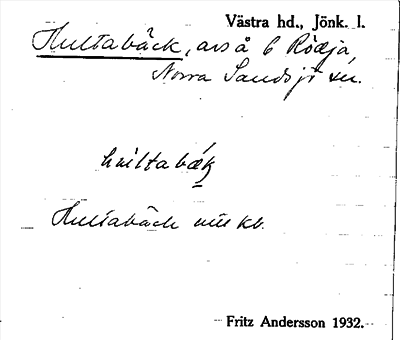 Västra hd., Jönk. l.
Hultabäck, avs å 6 Rödja
Norra Sandsjö sn.
hultabäk
Hultabäck enl kb.
Fritz Andersson 1932.